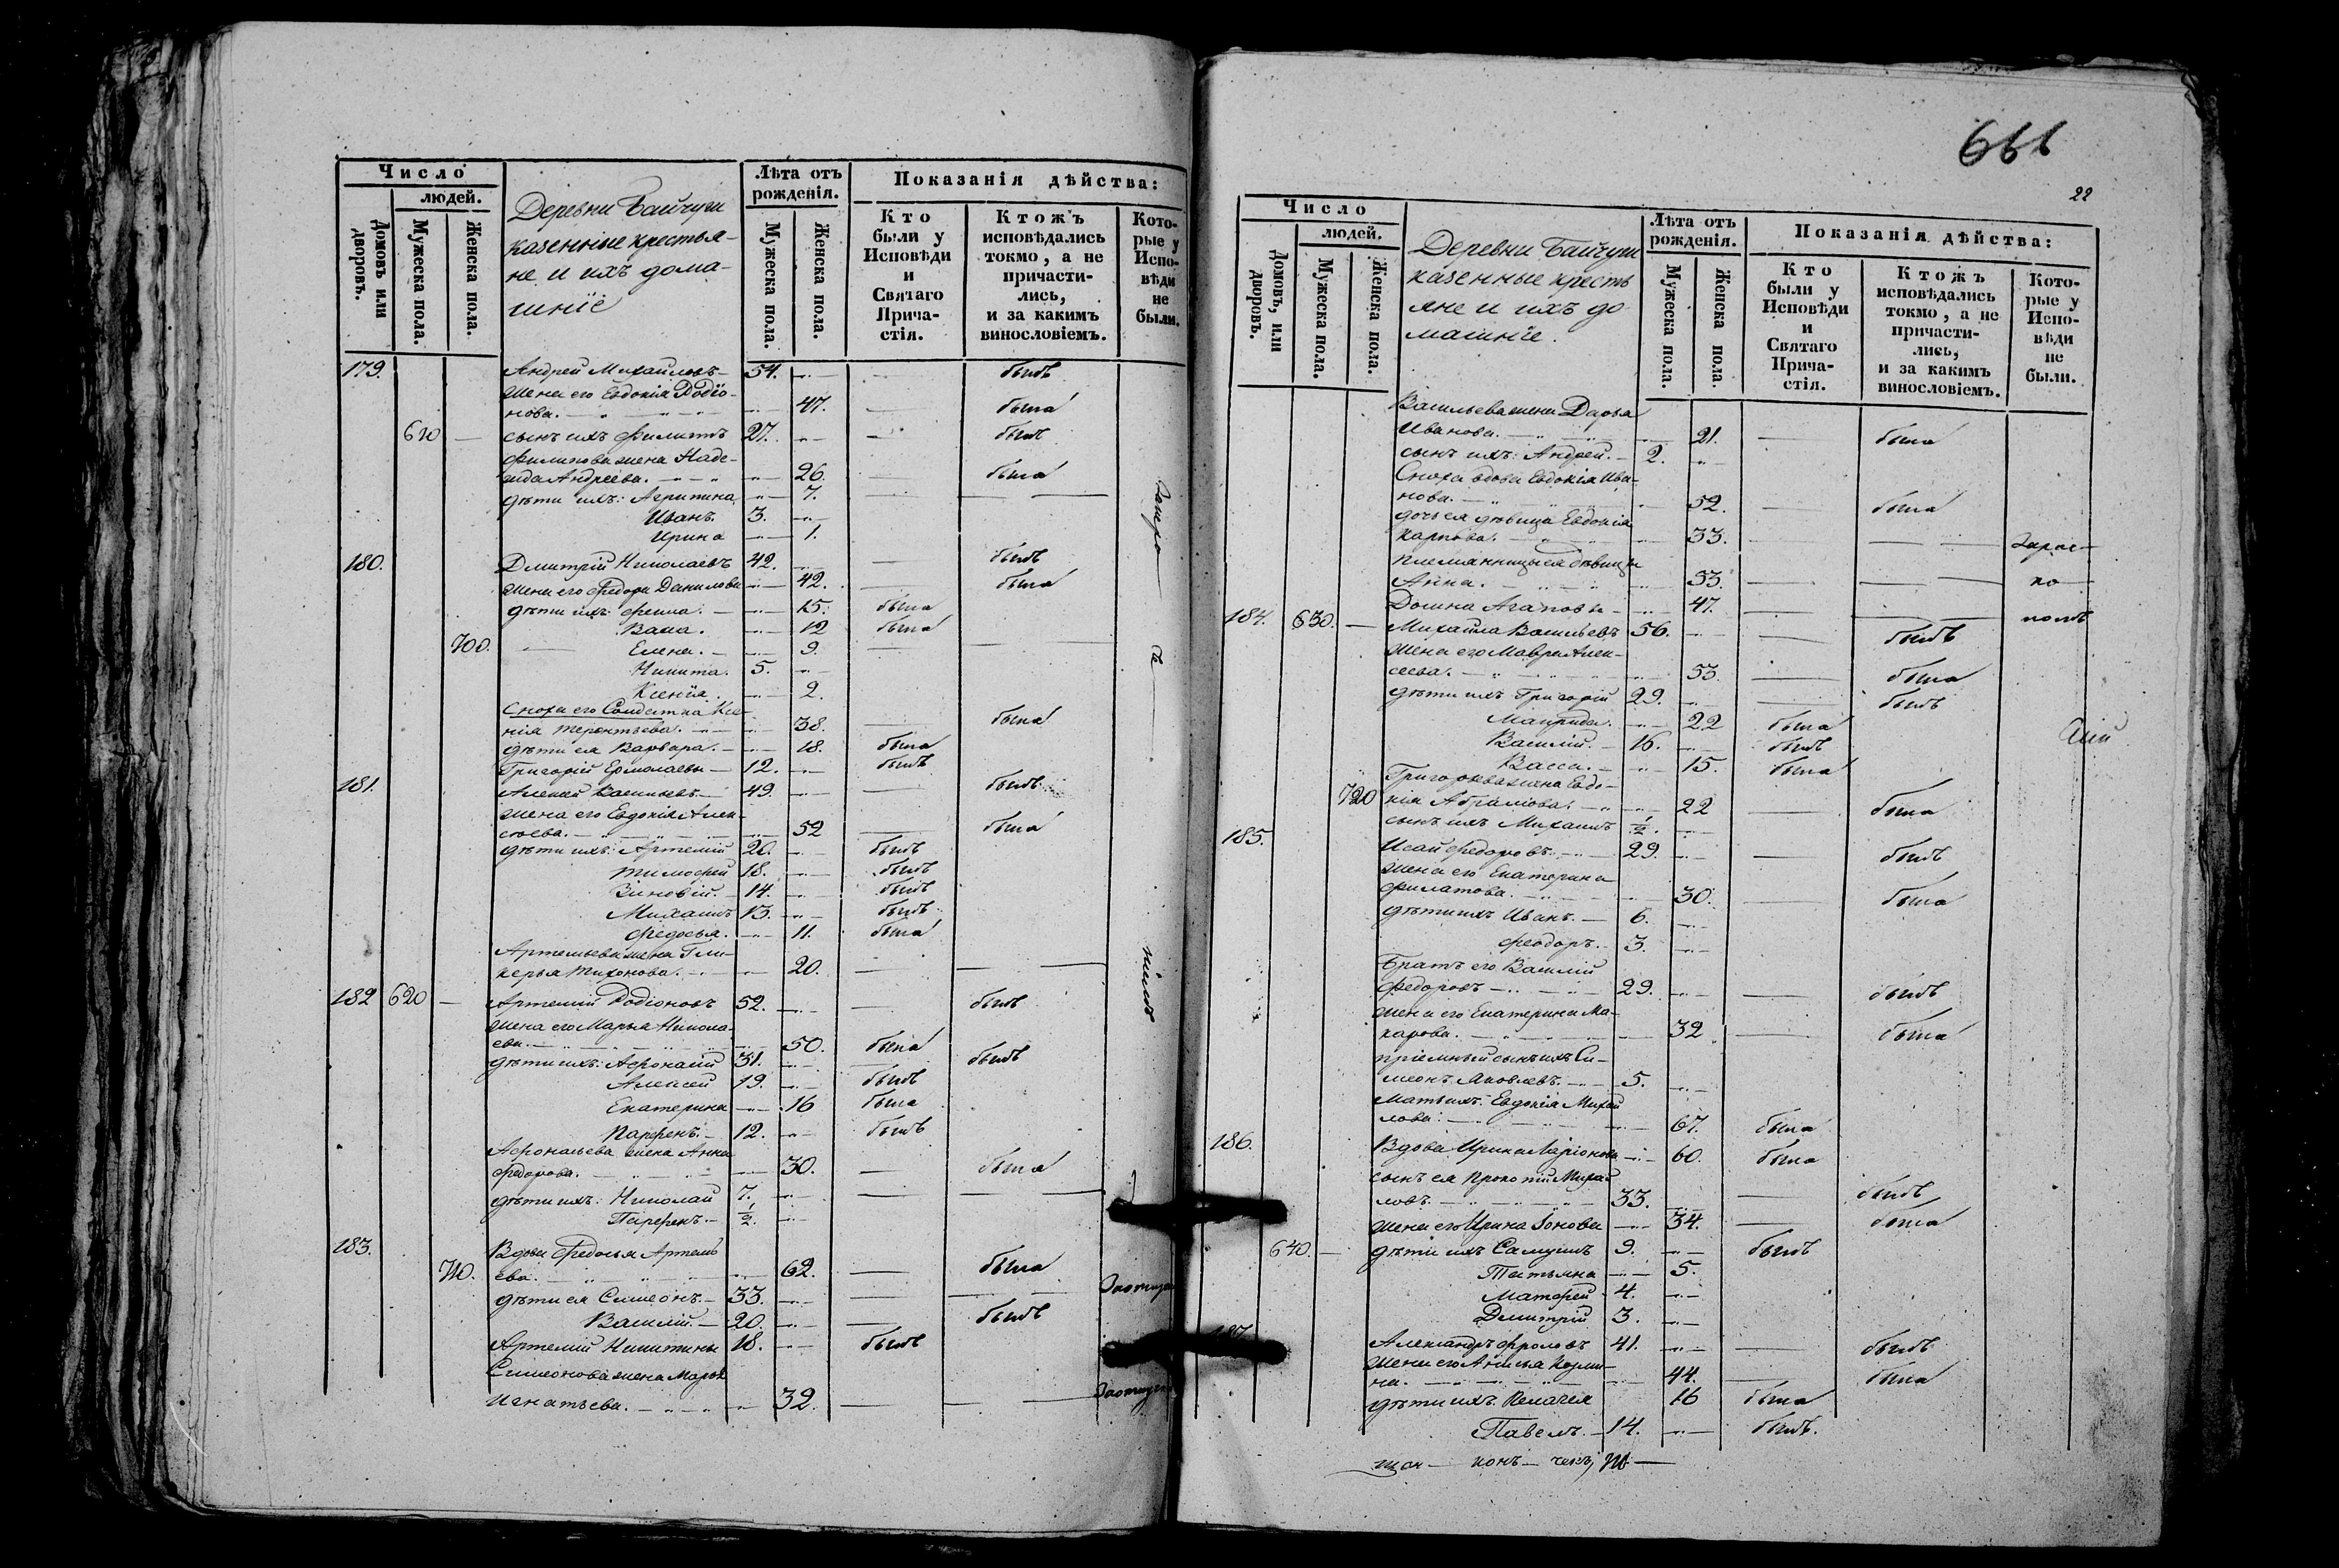 Число
людей.
Домовъ или дворовъ.
Мужеска пола.
Женска пола.
Деревни Байчуги
казенные крестья-
не и ихъ дома-
шніе
Лѣта отъ
рожденія.
Мужеска пола.
Женска пола.
Показанія дѣйства:
Кто
были у
Исповѣди
и
Святаго
Прича-
стія.
Ктожъ
исповѣдались
токмо, а не
причасти-
лись,
и за какимъ
винословіемъ.
Кото-
рые у
Испо-
вѣди
не
были.
179. Андрей Михайловъ 54. былъ
жена его Евдокія Родіо-
нова. 47. была
610 сынъ ихъ Филиппъ 27. былъ
Филипова жена Наде-
жда Андреева. 26. была
дѣти ихъ: Агрипина 7.
Иванъ. 3.
Ирина 1.
180. Дмитрій Николаевъ 42. былъ
жена его Федора Данилова 42. была
дѣти ихъ: Фекла. 15. была
Васса. 12 была
700. Елена. 9.
Никита. 5.
Ксенія. 2.
Сноха его Солдатка Ксе-
нія Терентьева. 38. была
дѣти ея Варвара. 18. была
Григорій Ермолаевы 12. былъ
181. Алексѣй Васильевъ 49. былъ
жена его Евдокія Алек-
сѣева. 52 была
дѣти ихъ: Артемій 20. былъ
Тимофей 18. былъ
Зиновій. 14. былъ
Михаилъ 13. былъ
Федосья. 11. была
Артемьева жена Гли-
керья Тихонова. 20.
182 620 Артемій Родіоновъ 52. былъ
жена его Марья Никола-
ева. 50. была
дѣти ихъ: Афонасій 31. былъ
Алексѣй 19. былъ
Екатерина 16 была
Парфенъ. 12. былъ
Афонасьева жена Анна
Федорова. 30. была
дѣти ихъ: Николай 7.
Парфенъ. ½.
183. Вдова Федосья Артемь
710. ева. 62. была
дѣти ея Симеонъ. 33.
Василій. 20. былъ
Артемій Никитины 18. былъ
Симеонова жена Марья
Игнатьева. 32.
666
22
Число
людей.
Домовъ, или дворовъ.
Мужеска пола.
Женска пола.
Деревни Байчуги
казенные кресть
яне и ихъ до
машніе.
Лѣта отъ
рожденія.
Мужеска пола.
Женска пола.
Показанія дѣйства:
Кто
были у
Исповѣди
и
Святаго
Прича-
стія.
Ктожъ
исповѣдались
токмо, а не
причасти-
лись,
и за какимъ
винословіемъ.
Кото-
рые у
Испо-
вѣди
не
были.
Васильева жена Дарья
Иванова. 21. была
сынъ ихъ: Андрей. 2.
Сноха вдова Евдокія Ива-
нова. 52. была
дочь ея дѣвица Евдокія
Карпова. 33.
племянницы ея дѣвицы
Анна. 53.
Домна Агаповы 47.
184. 630. Михаила Васильевъ 56. былъ
жена его Мавра Алек-
сѣева. 53. была
дѣти ихъ Григорій 29. былъ
Макрида. 22 была
Василій. 16. былъ
Васса. 15. была
Григорьева жена Евдо-
720 кія Абрамова. 22 была
сынъ ихъ Михаилъ ½.
185. Исай Федоровъ 29. былъ
жена его Екатерина
Филатова. 30. была
дѣти ихъ Иванъ. 6.
Феодоръ. 3.
Братъ его Василій
Федоровъ 29. былъ
жена его Екатерина Ма-
карова. 32 была
пріемный сынъ ихъ Си-
меонъ Яковлевъ. 5.
Мать ихъ Евдокія Михай
лова. 67. была
186. Вдова Ирина Ларіонова 60. была
сынъ ея Прокопій Михай
ловъ. 33. былъ
жена его Ирина Іонова 34. была
640. дѣти ихъ Самуилъ 9. былъ
Татьяна 5.
Матфей 4.
Дмитрій 3.
187. Александръ Фроловъ 41. былъ
жена его Анисья Козми-
на. 44. была
дѣти ихъ Пелагея 16 была
Павелъ. 14. былъ.